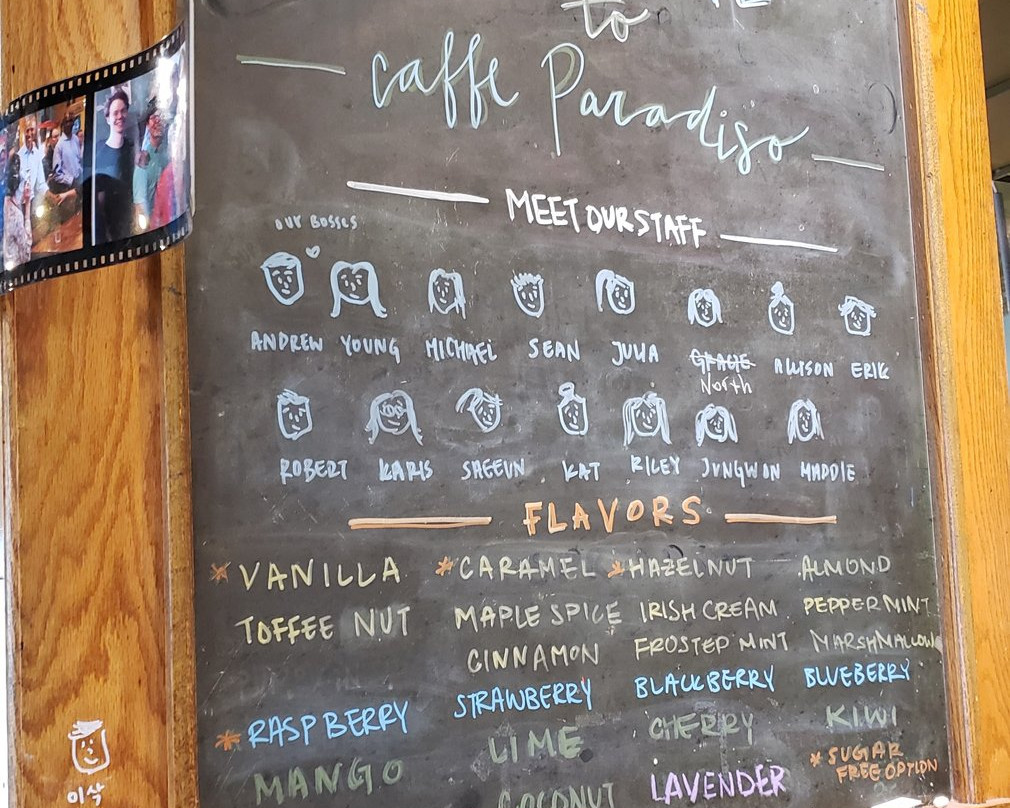 to
caffe Paradiso
MEET OUR STAFF
OUR BOSSES
ANDREW YOUNG MICHAEL SEAN JULIA GRACIE ALLISON ERIK
North
ROBERT KARIS SAEEUN KAT RILEY JUNGWON MADDIE
FLAVORS
*VANILLA *CARAMEL *HAZELNUT ALMOND
TOFFEE NUT MAPLE SPICE IRISH CREAM PEPPERMINT
CINNAMON FROSTED MINT MARSHMALLOW
*RASPBERRY STRAWBERRY BLACKBERRY BLUEBERRY
MANGO LIME CHERRY KIWI
COCONUT LAVENDER *SUGAR
FREE OPTION
이삭